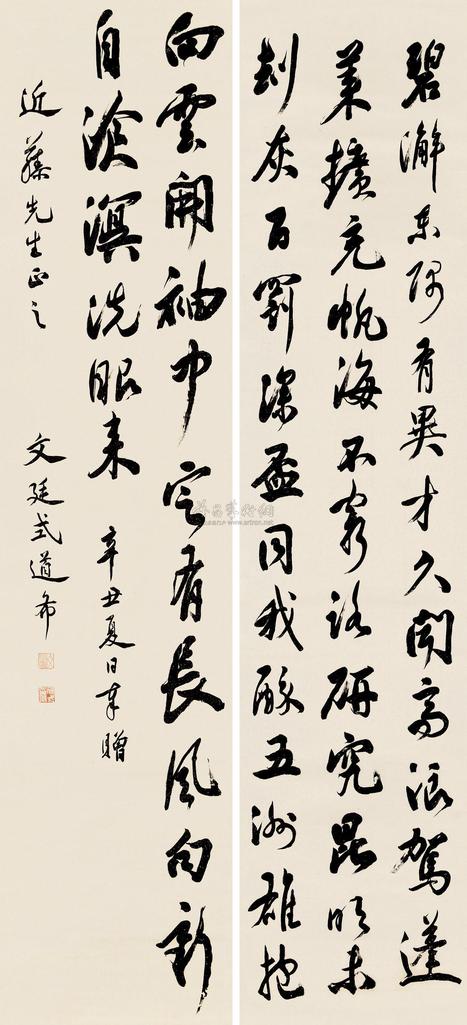 碧澥東隅有異才久聞高浪駕蓬
萊擴充帆海不窮路研究昆明未
刦灰百罰深盃同我醉五洲雄抱
向雲開袖中定有長風句新
自滄溟洗眼來 辛丑夏日奉贈
近藤先生正之 文廷式道希